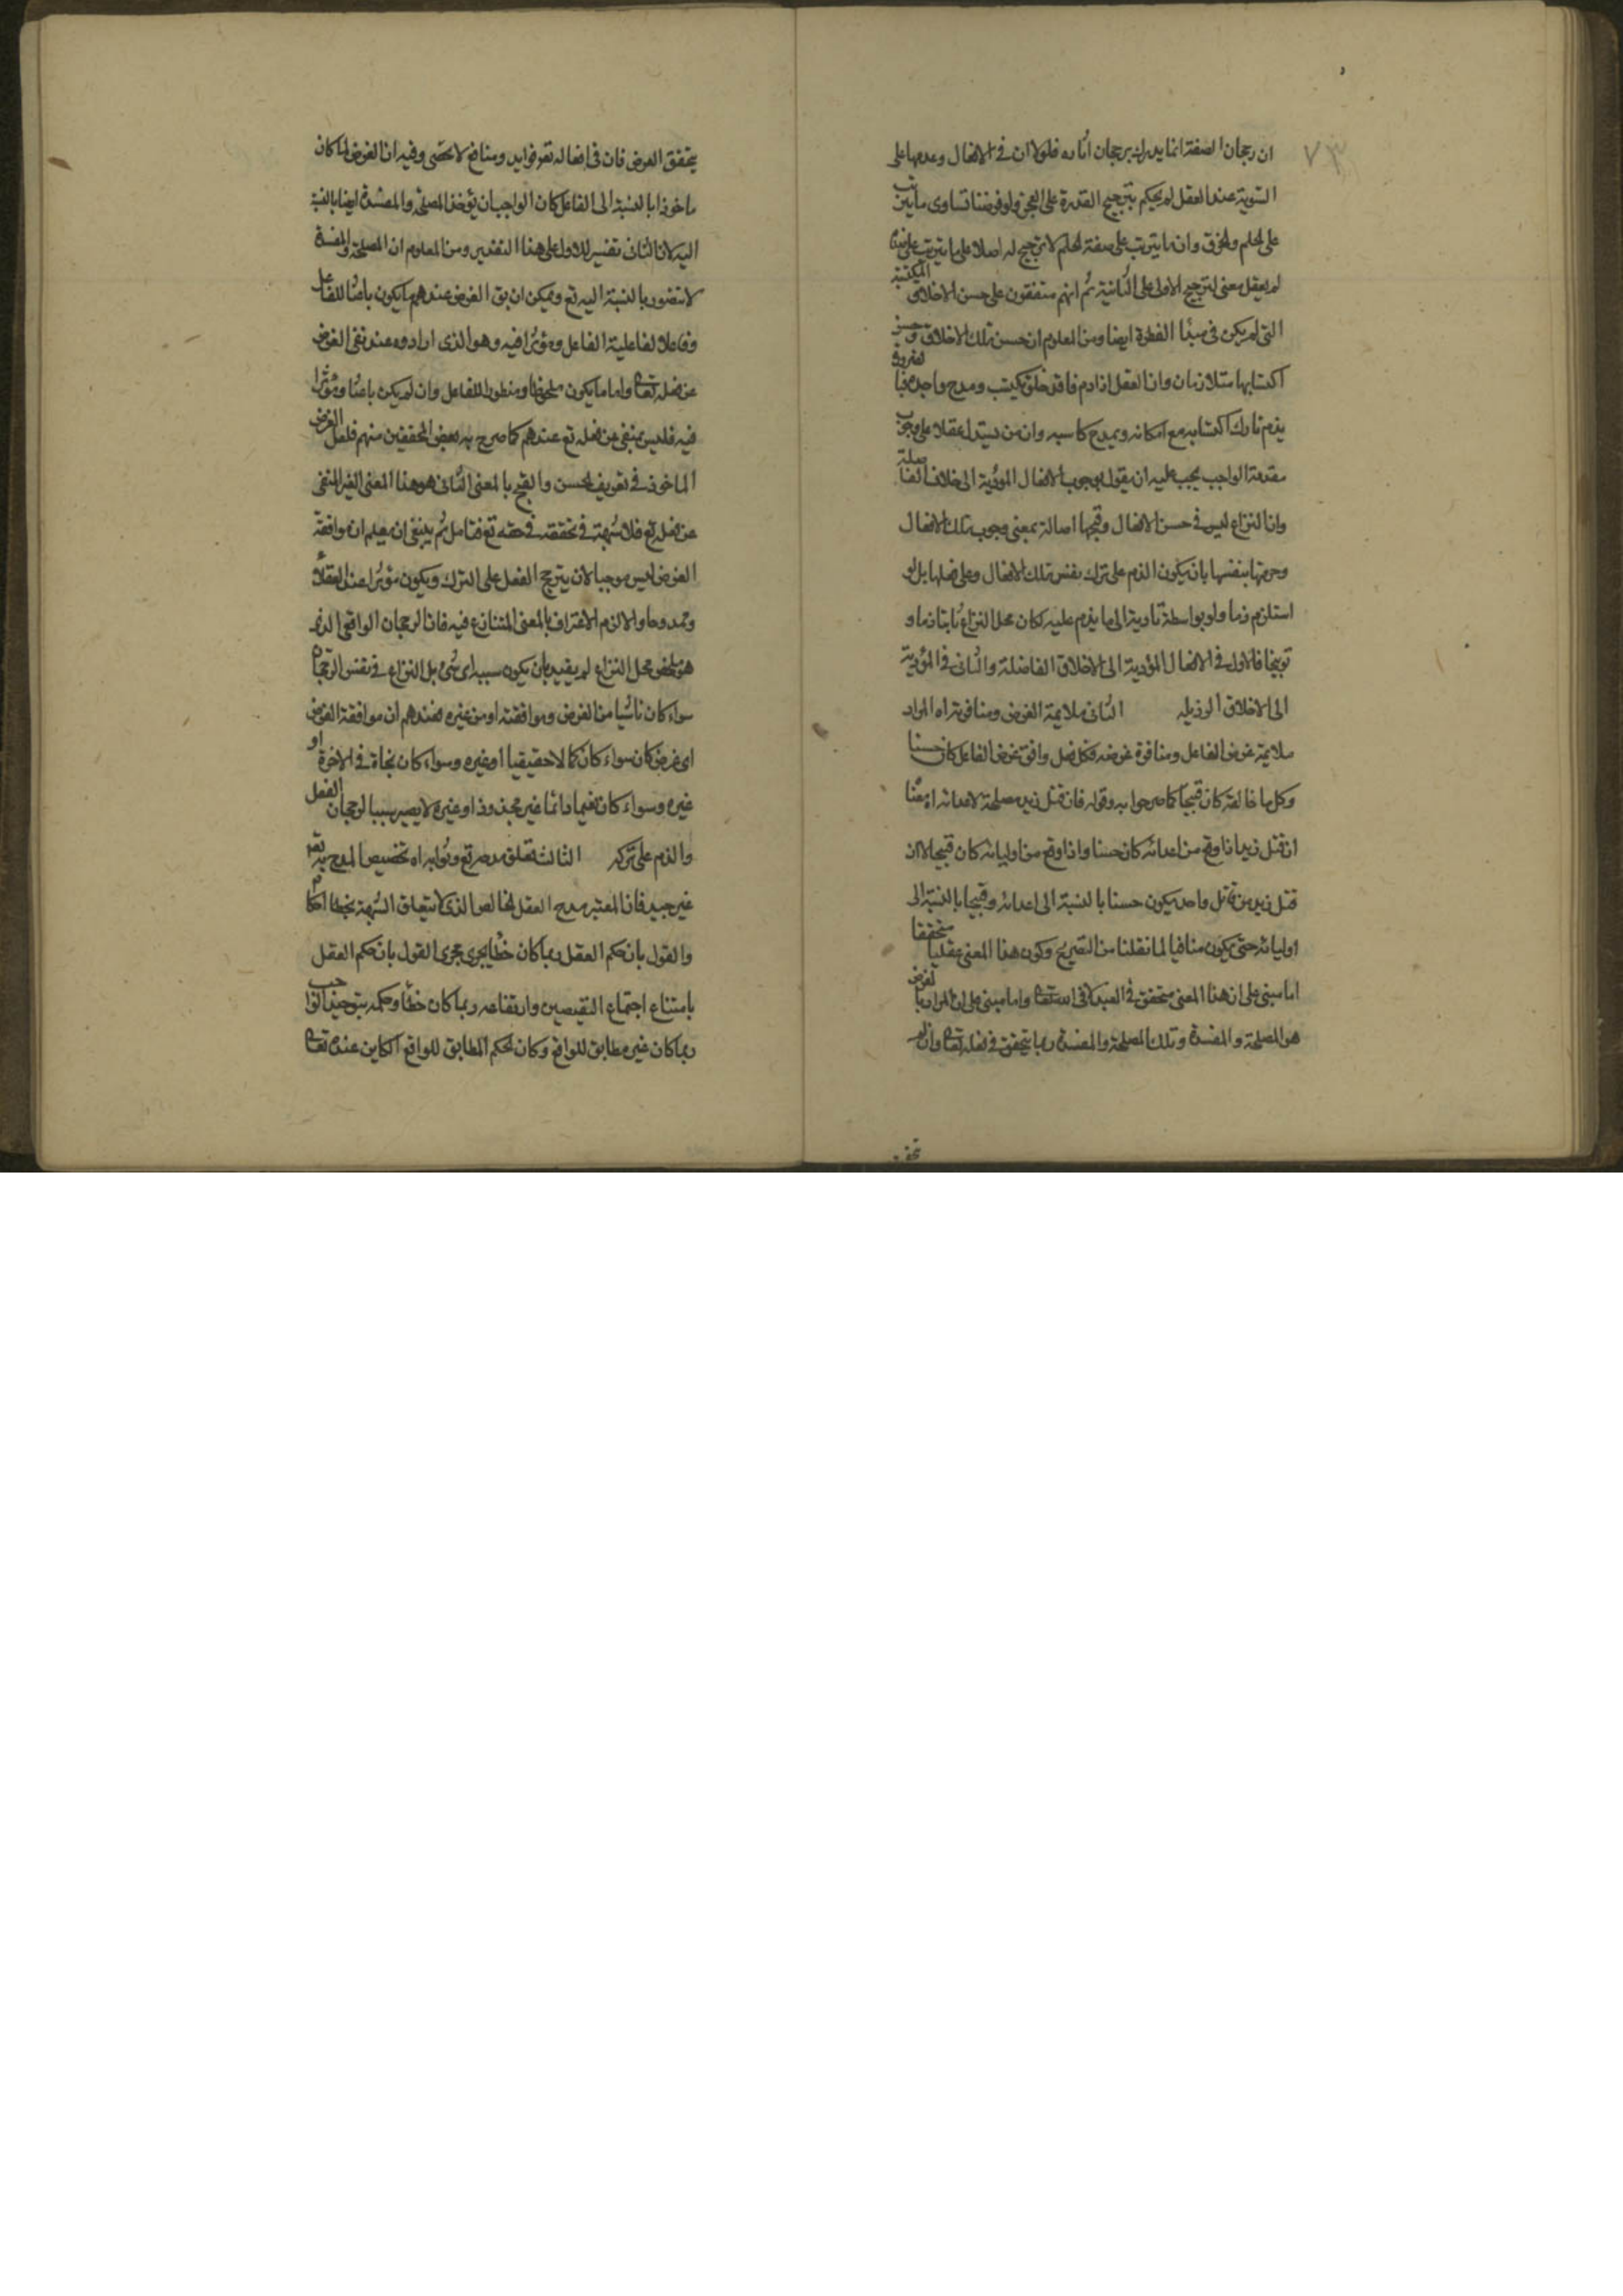 ٧٣
ان رجحان الصفة انما يدرك برجحان اثاره فلولا ان في الافعال وعدمها على
التسوية عند العقل لم يحكم بترجيح القدرة على العجز ولو فرضنا تساوى ما يترتب
على الحلم والخرق وان ما يترتب على صفة الحلم لا ترجيح له اصلا على ما يترتب على
لم يعقل معنى لترجيح الاولى على الثانية ثم انهم متفقون على حسن الاخلاق المكتسبة
التي لم يكن في مبدأ الفطرة ايضا ومن المعلوم ان حسن تلك الاخلاق وحسن
اكتسابها متلازمان وان العقل اذا ذم فاقد خلق يكتسب ومدح واجده
يذم تارك اكتسابه مع امكانه ويمدح كاسبه وان من يستدل عقلا على وجوب
مقدمة الواجب يجب عليه ان يقول بوجوب الافعال المؤدية الى الاخلاق الفاضلة
وان النزاع ليس في حسن الافعال وقبحها اصالة بمعنى وجوب تلك الافعال
وحرمتها بنفسها بان يكون الذم على ترك نفس تلك الافعال وعلى فعلها بل لو
استلزم ذما ولو بواسطة تاديته الى ما يذم عليه لكان محل النزاع ثابتا ذما و
توبيخا فالاول في الافعال المؤدية الى الاخلاق الفاضلة والثاني في المؤدية
الى الاخلاق الرذيله الثاني ملايمة الغرض ومنافرته اه المراد
ملايمة غرض الفاعل ومنافرة غرضه فكل فعل وافق غرض الفاعل كان حسنا
وكل ما خالفه كان قبيحا كما صرحوا به وقوله فان قتل زيد مصلحة لاعدائه اه معنا
ان قتل زيد اذا وقع من اعدائه كان حسنا واذا وقع من اوليائه كان قبيحا لا ان
قتل زيد من قاتل واحد يكون حسنا بالنسبة الى اعدائه وقبيحا بالنسبة الى
اوليائه حتى يكون منافيا لما نقلنا من التصريح وكون هذا المعنى عقليا متحققا
اما مبنى على ان هذا المعنى متحقق في العبد لا في الله تعالى واما مبنى على ان المراد بالغرض
هو المصلحة والمفسدة وتلك المصلحة والمفسدة ربما يتحقق في فعله تعالى وان لم
يتحقق
يتحقق الغرض فان في افعاله تعالى فوايد ومنافع لا تحصى وفيه ان الغرض لما كان
ماخوذا بالنسبة الى الفاعل كان الواجب ان يؤخذ المصلحة والمفسدة ايضا بالنسبة
اليه لان الثاني تفسير للاول على هذا التقدير ومن المعلوم ان المصلحة والمفسدة
لا تتصور بالنسبة اليه تع ويمكن ان يق الغرض عندهم ما يكون باعثا للفاعل
وفاعلا لفاعلية الفاعل ومؤثرا فيه وهو الذى ارادوه عند نفى الغرض
عن فعله تعالى واما ما يكون ملحوظا ومنظورا للفاعل وان لم يكن باعثا ومؤثرا
فيه فليس بمنفى عن فعله تع عندهم كما صرح به بعض المحققين منهم فلعل الغرض
الماخوذ في تعريف الحسن والقبح بالمعنى الثاني هو هذا المعنى الغير المنفى
عن فعله تع فلا شبهة في تحققه في حقه تع فتامل ثم ينبغى ان يعلم ان موافقة
الغرض ليس موجبا لان يترجح الفعل على الترك ويكون مؤثرا عند العقلاء
وممدوحا والا لزم الاعتراف بالمعنى المتنازع فيه فان الرجحان الواقعى الذى
هو محل النزاع لم يقيد بان يكون سببه اى شئ بل النزاع في نفس الرجحان
سواء كان ناشيا من الغرض وموافقته او من غيره فعندهم ان موافقة الغرض
اى غرض كان سواء كان كمالا حقيقيا او غيره وسواء كان نجاة في الاخرة او
غيره وسواء كان نعيما دائما غير مجذوذ او غيره لا يصير سببا لرجحان الفعل
والذم على تركه الثالث تعلق مدحه تع وثوابه اه تخصيص المدح به تعالى
غير جيد فان المعتبر مدح العقل الخالص الذى لا يتعلق الشبهة بخطا احكامه
والقول بان حكم العقل ربما كان خطأ يجرى مجرى القول بان حكم العقل
بامتناع اجتماع النقيضين وارتفاعه ربما كان خطأ وحكمه بتوحيد الواجب
ربما كان غير مطابق للواقع وكان الحكم المطابق للواقع الكاين عنده تعالى